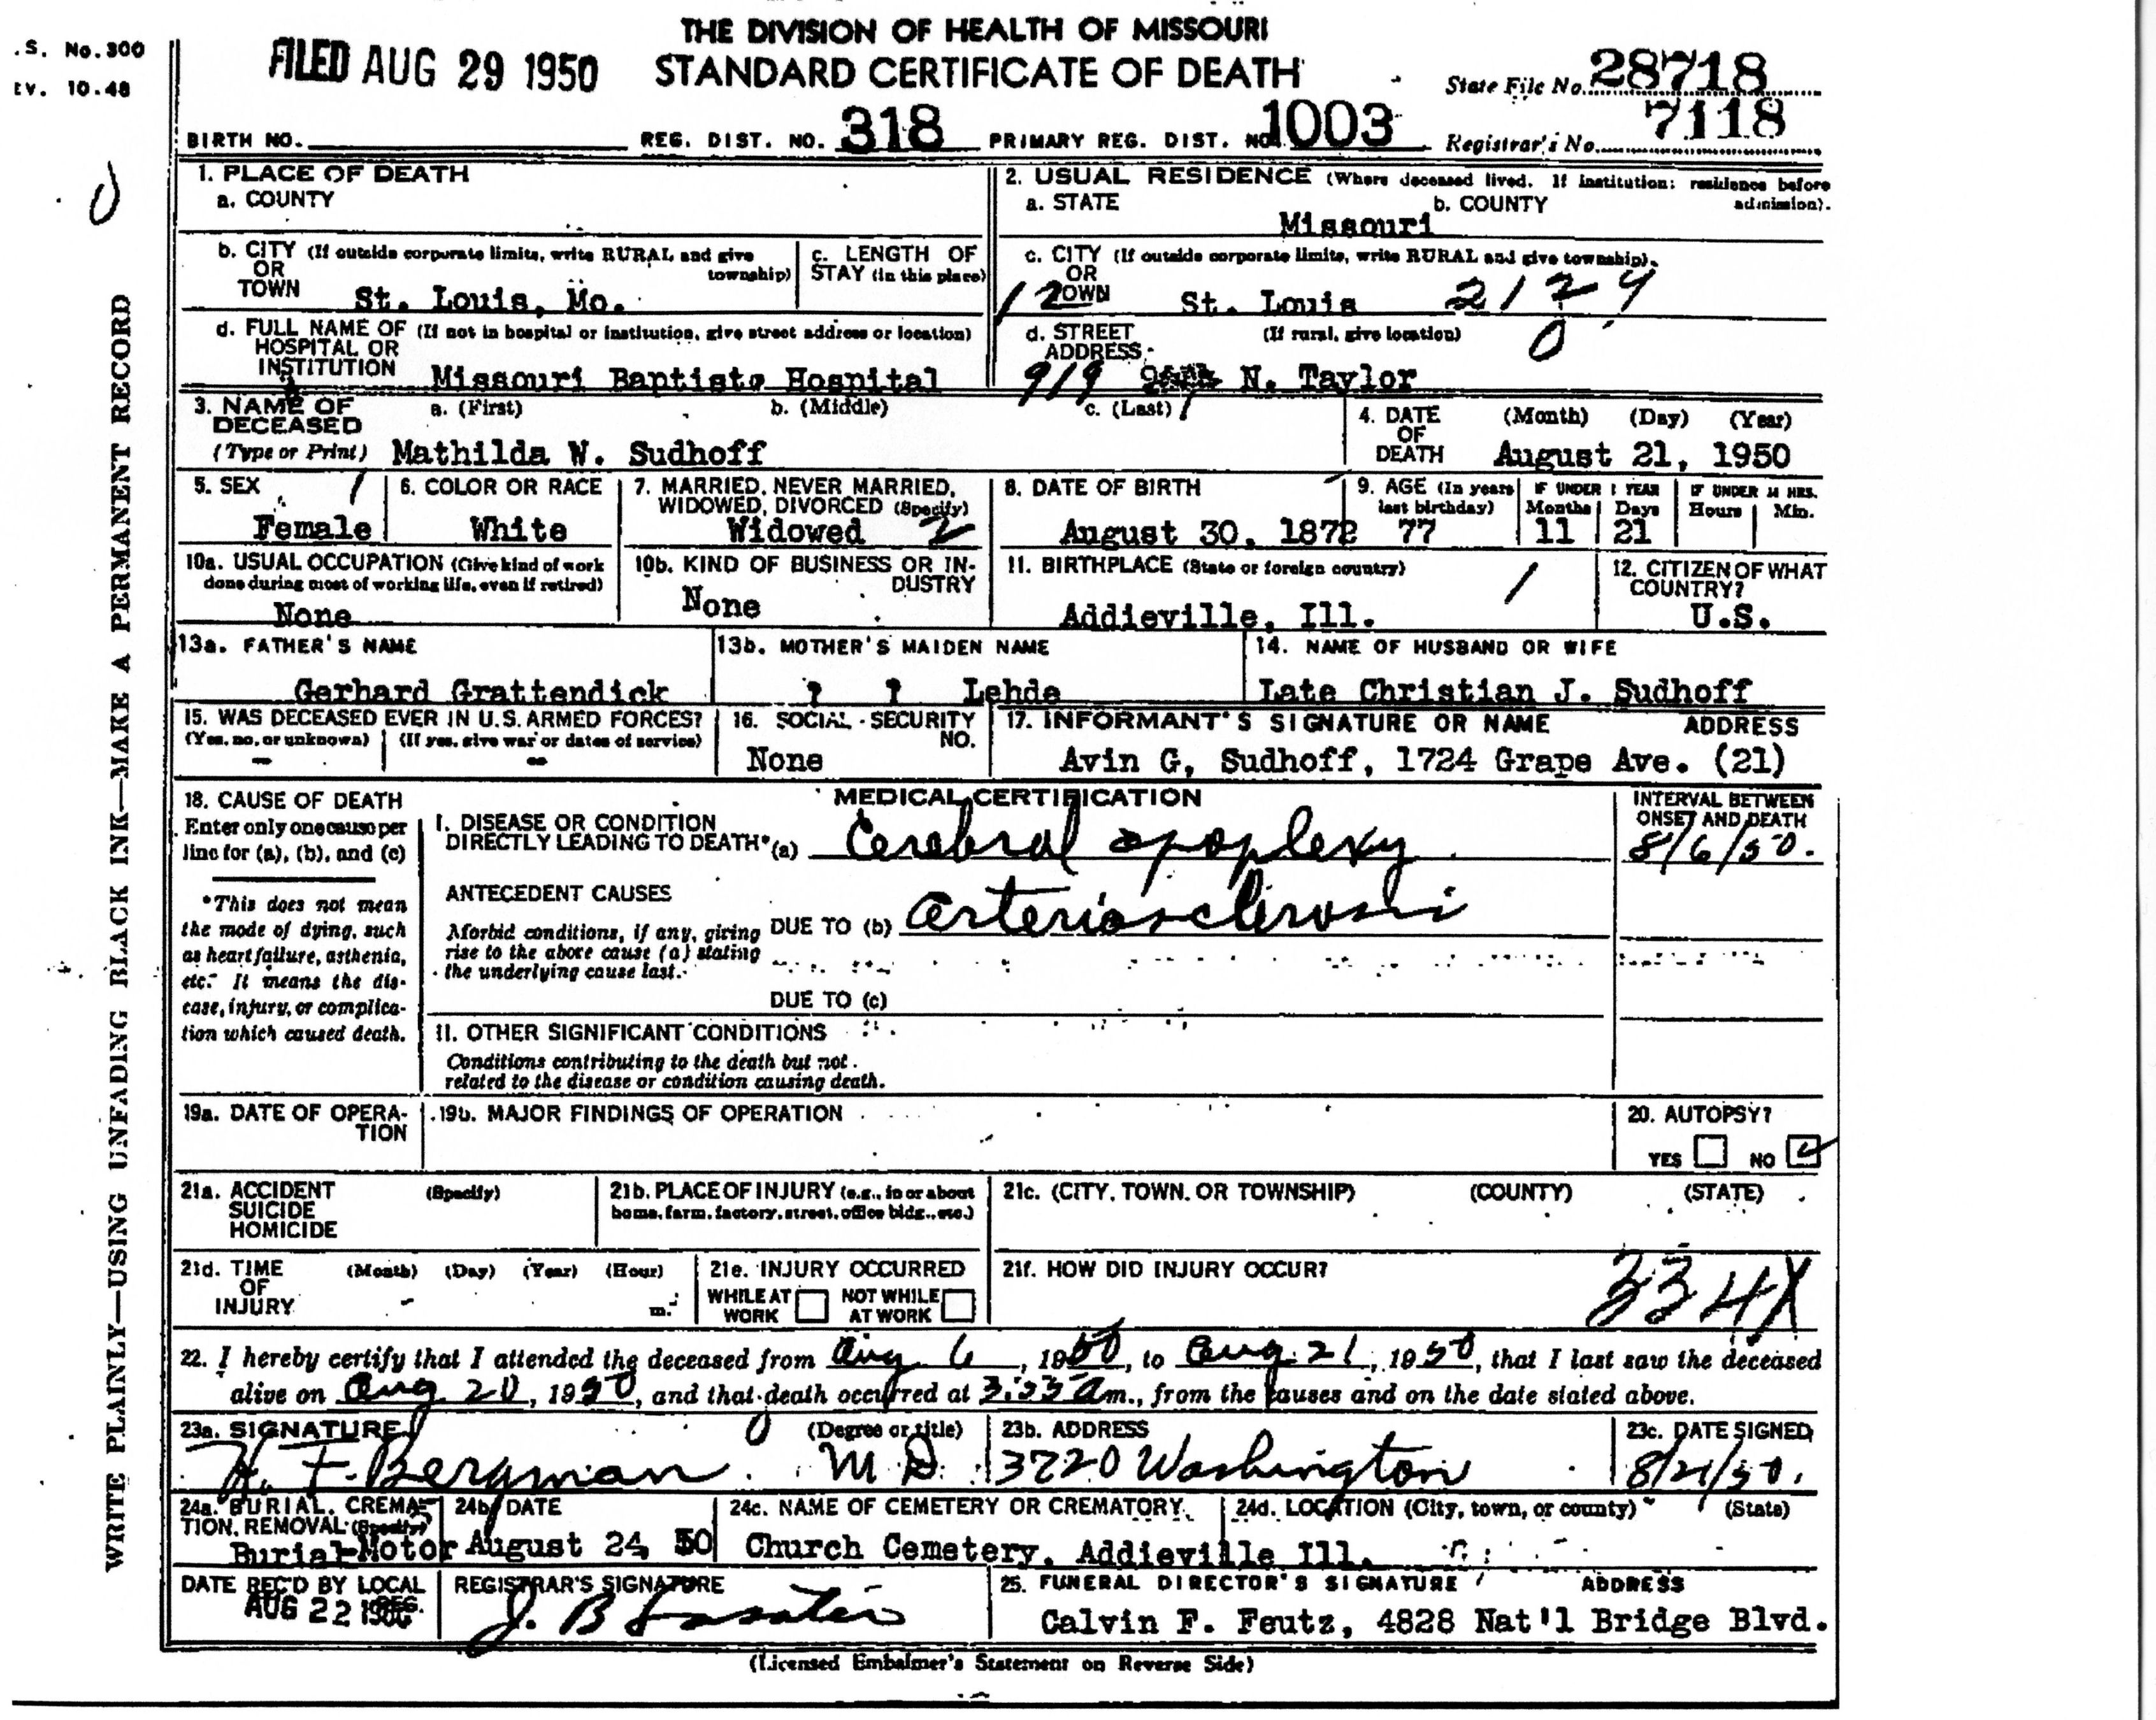 .S. No. 300
EV. 10-48
FILED AUG 29 1950
THE DIVISION OF HEALTH OF MISSOURI
STANDARD CERTIFICATE OF DEATH
State File No. 28718
BIRTH NO. REG. DIST. NO. 318 PRIMARY REG. DIST. NO. 1003 Registrar's No. 7118
WRITE PLAINLY—USING UNFADING BLACK INK—MAKE A PERMANENT RECORD
1. PLACE OF DEATH
a. COUNTY
2. USUAL RESIDENCE (Where deceased lived. If institution: residence before admission).
a. STATE b. COUNTY
Missouri
b. CITY (If outside corporate limits, write RURAL and give township)
OR
TOWN St. Louis, Mo.
c. LENGTH OF
STAY (in this place)
c. CITY (If outside corporate limits, write RURAL and give township).
OR
TOWN St. Louis 2129
d. FULL NAME OF (If not in hospital or institution, give street address or location)
HOSPITAL OR
INSTITUTION Missouri Baptist Hospital
d. STREET (If rural, give location)
ADDRESS
919 N. Taylor
3. NAME OF DECEASED
a. (First) b. (Middle) c. (Last)
(Type or Print) Mathilda W. Sudhoff
4. DATE OF DEATH (Month) (Day) (Year)
August 21, 1950
5. SEX
Female
6. COLOR OR RACE
White
7. MARRIED, NEVER MARRIED,
WIDOWED, DIVORCED (Specify)
Widowed 2
8. DATE OF BIRTH
August 30, 1872
9. AGE (In years last birthday)
77
IF UNDER 1 YEAR
Months Days
11 21
IF UNDER 24 HRS.
Hours Min.
10a. USUAL OCCUPATION (Give kind of work
done during most of working life, even if retired)
None
10b. KIND OF BUSINESS OR INDUSTRY
None
11. BIRTHPLACE (State or foreign country)
Addieville, Ill.
12. CITIZEN OF WHAT
COUNTRY?
U.S.
13a. FATHER'S NAME
Gerhard Grattendick
13b. MOTHER'S MAIDEN NAME
? ? Lehde
14. NAME OF HUSBAND OR WIFE
Late Christian J. Sudhoff
15. WAS DECEASED EVER IN U.S. ARMED FORCES?
(Yes, no, or unknown) (If yes, give war or dates of service)
- -
16. SOCIAL SECURITY
NO.
None
17. INFORMANT'S SIGNATURE OR NAME ADDRESS
Avin G, Sudhoff, 1724 Grape Ave. (21)
18. CAUSE OF DEATH
Enter only one cause per
line for (a), (b), and (c)
*This does not mean
the mode of dying, such
as heart failure, asthenia,
etc. It means the dis-
ease, injury, or complica-
tion which caused death.
MEDICAL CERTIFICATION
I. DISEASE OR CONDITION
DIRECTLY LEADING TO DEATH* (a) Cerebral apoplexy
INTERVAL BETWEEN
ONSET AND DEATH
8/6/50.
ANTECEDENT CAUSES
Morbid conditions, if any, giving
rise to the above cause (a) stating
the underlying cause last.
DUE TO (b) arteriosclerosis
DUE TO (c)
II. OTHER SIGNIFICANT CONDITIONS
Conditions contributing to the death but not
related to the disease or condition causing death.
19a. DATE OF OPERA-
TION
19b. MAJOR FINDINGS OF OPERATION
20. AUTOPSY?
YES NO
21a. ACCIDENT (Specify)
SUICIDE
HOMICIDE
21b. PLACE OF INJURY (e.g., in or about
home, farm, factory, street, office bldg., etc.)
21c. (CITY, TOWN, OR TOWNSHIP) (COUNTY) (STATE)
21d. TIME (Month) (Day) (Year) (Hour)
OF
INJURY m.
21e. INJURY OCCURRED
WHILE AT WORK NOT WHILE AT WORK
21f. HOW DID INJURY OCCUR?
334X
22. I hereby certify that I attended the deceased from Aug 6, 1950, to Aug. 21, 1950, that I last saw the deceased
alive on Aug 20, 1950, and that death occurred at 3:55 am., from the causes and on the date stated above.
23a. SIGNATURE (Degree or title)
H. F. Bergman. M D.
23b. ADDRESS
3720 Washington
23c. DATE SIGNED
8/21/50.
24a. BURIAL, CREMA-
TION, REMOVAL (Specify)
Burial-Motor
24b. DATE
August 24, 50
24c. NAME OF CEMETERY OR CREMATORY
24d. LOCATION (City, town, or county) (State)
Church Cemetery, Addieville Ill.
DATE REC'D BY LOCAL
REG.
AUG 22 1950
REGISTRAR'S SIGNATURE
J. B. Lasater
25. FUNERAL DIRECTOR'S SIGNATURE ADDRESS
Calvin F. Feutz, 4828 Nat'l Bridge Blvd.
(Licensed Embalmer's Statement on Reverse Side)